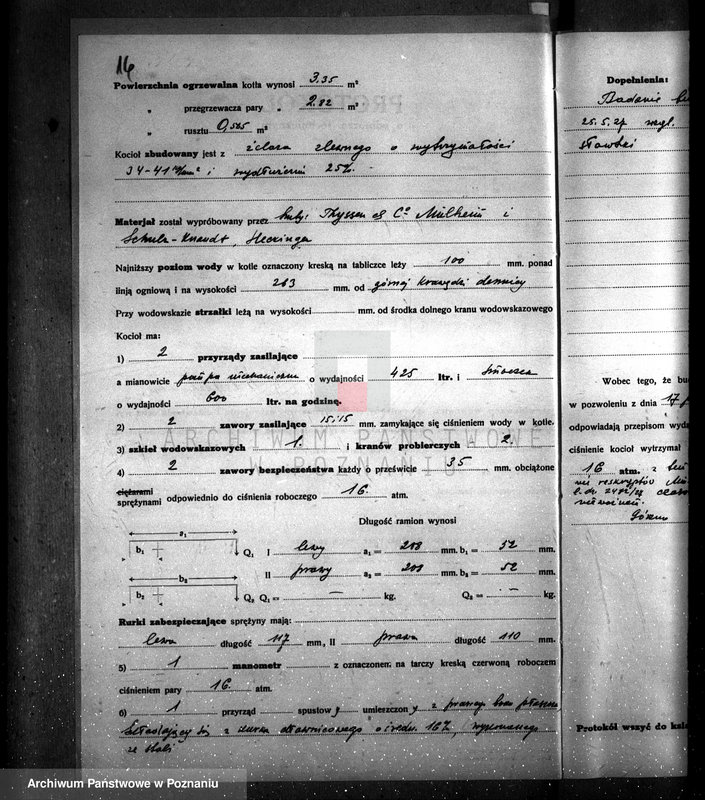 16
Powierzchnia ogrzewalna kotła wynosi 3,35 m²
„ przegrzewacza pary 2,82 m²
„ rusztu 0,585 m²
Kocioł zbudowany jest z żelaza zlewnego o wytrzymałości
34-41 i wydłużeniu 25%
Materjał został wypróbowany przez Thyssen & Cº Mülheim i
Schulz-Knaudt, Heckinger
Najniższy poziom wody w kotle oznaczony kreską na tabliczce leży 100 mm. ponad
linją ogniową i na wysokości 203 mm. od górnej krawędzi dennicy
Przy wodowskazie strzałki leżą na wysokości mm. od środka dolnego kranu wodowskazowego
Kocioł ma:
1) 2 przyrządy zasilające
a mianowicie pompa mechaniczna o wydajności 425 ltr. i smoczek
o wydajności 600 ltr. na godzinę.
2) 2 zawory zasilające 15;15 mm. zamykające się ciśnieniem wody w kotle.
3) szkieł wodowskazowych 1. i kranów probierczych 2.
4) 2 zawory bezpieczeństwa każdy o prześwicie 35 mm. obciążone
ciężarami
sprężynami odpowiednio do ciśnienia roboczego 16. atm.
Długość ramion wynosi
a₁
b₁ Q₁ I lewy a₁ = 208 mm. b₁ = 52 mm.
a₂ II prawy a₂ = 209 mm. b₂ = 52 mm.
b₂ Q₂ Q₁ = — kg. Q₂ = — kg.
Rurki zabezpieczające sprężyny mają:
lewa długość 117 mm, II prawa długość 110 mm.
5) 1 manometr z oznaczonem na tarczy kreską czerwoną roboczem
ciśnieniem pary 16. atm.
6) 1 przyrząd spustowy umieszczony z prawej
składający się z kurka dławnicowego o średn. wykonanego
ze stali
Dopełnienia:
Badanie
25.5.27
Wobec tego, że bu
w pozwoleniu z dnia 17
odpowiadają przepisom wyda
ciśnienie kocioł wytrzymał
16 atm. z
reskryptów
Protokół wszyć do ksią
ARCHIWUM PAŃSTWOWE
W POZNANIU
Archiwum Państwowe w Poznaniu